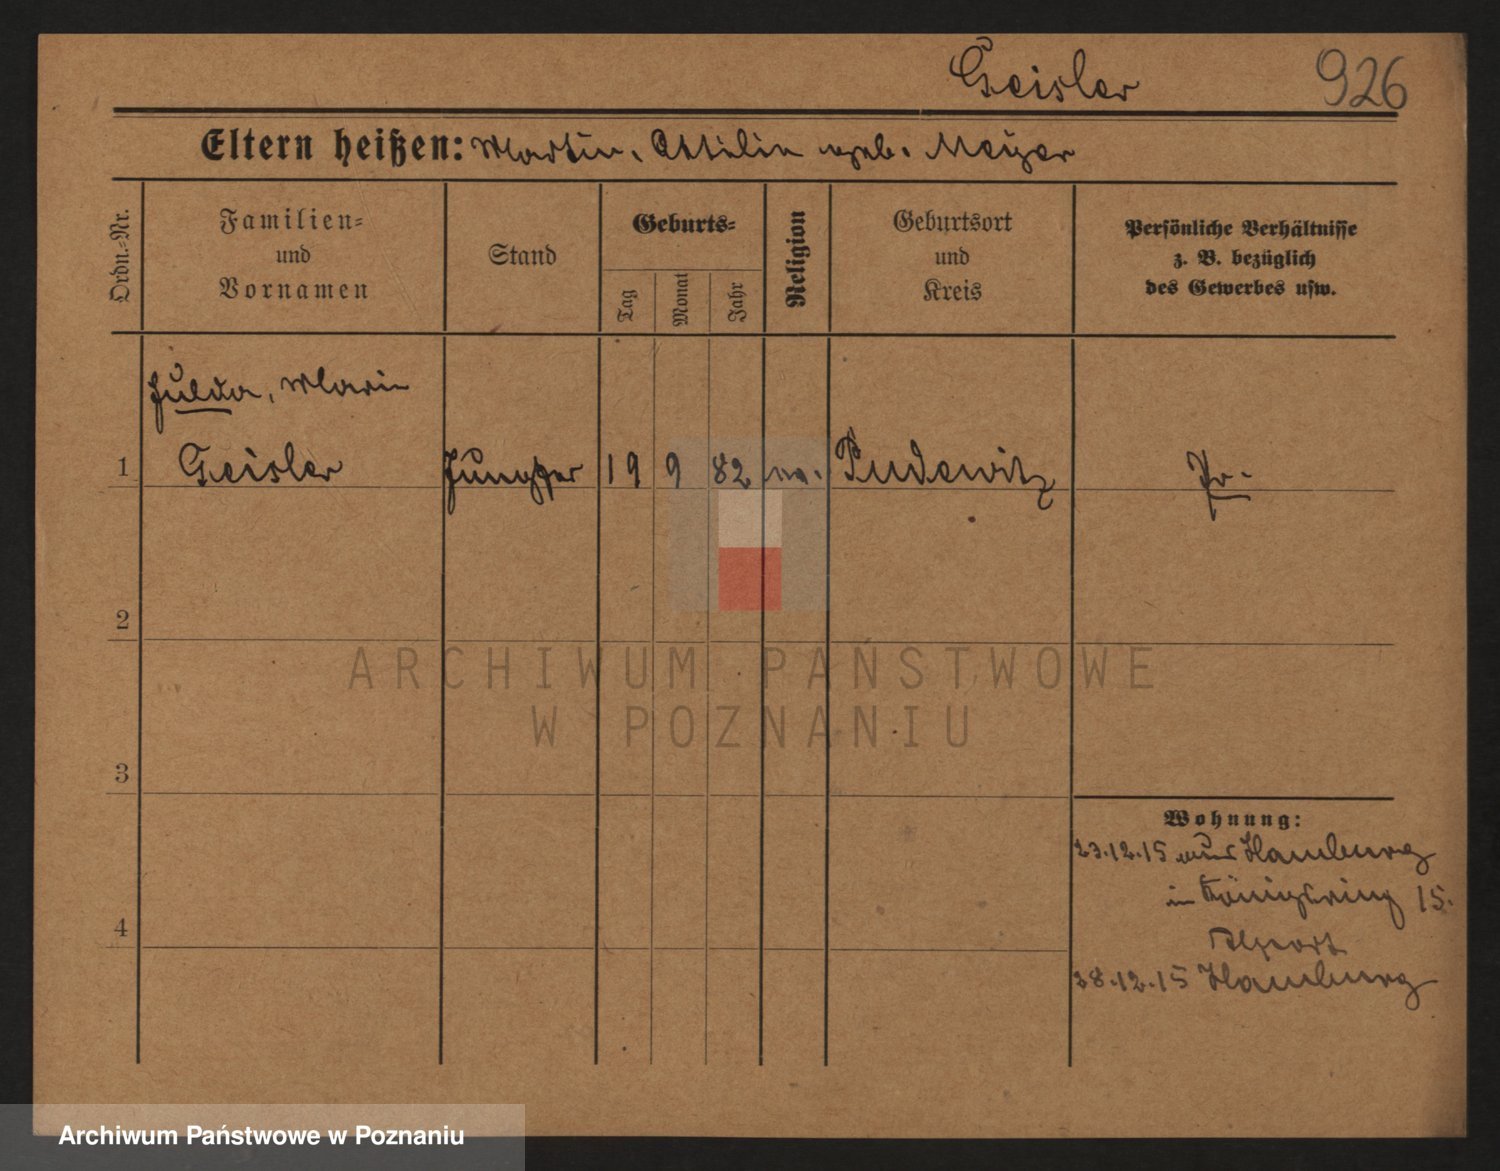 Geisler 926
Eltern heißen: Martin, Ottilie geb. Meyer
Ordn.-Nr.
Familien-
und
Vornamen
Stand
Geburts-
Tag
Monat
Jahr
Religion
Geburtsort
und
Kreis
Persönliche Verhältnisse
z. B. bezüglich
des Gewerbes usw.
Hulda, Marie
1 Geisler Jungfer 19 9 82 ev. Pudewitz Pr.
2
3
4
Wohnung:
23.12.15 aus Hamburg
in Königsring 15.
28.12.15 Hamburg
ARCHIWUM PAŃSTWOWE
W POZNANIU
Archiwum Państwowe w Poznaniu